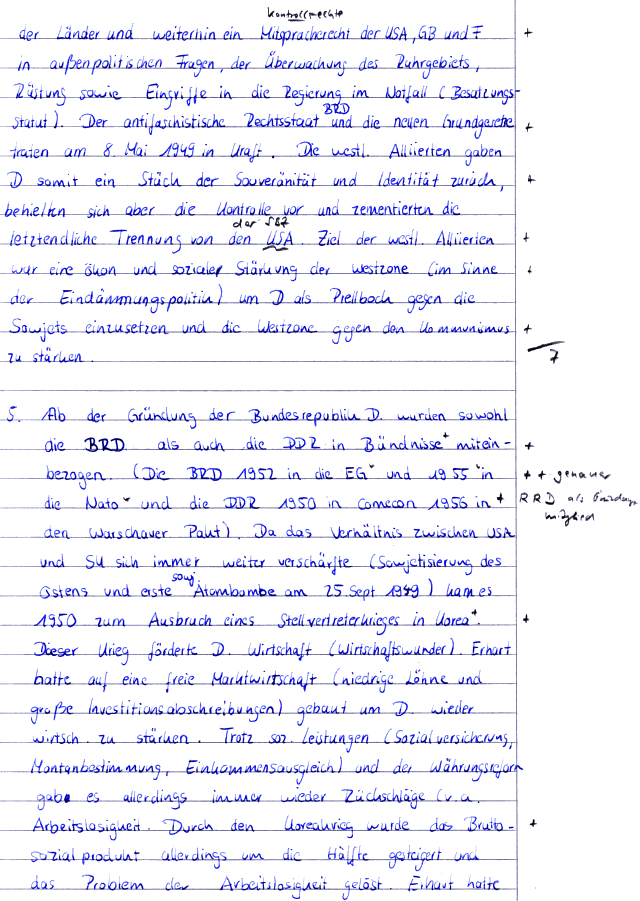 Kontrollrechte
der Länder und weiterhin ein Mitspracherecht der USA, GB und F +
in außenpolitischen Fragen, der Überwachung des Ruhrgebiets,
Rüstung sowie Eingriffe in die Regierung im Notfall (Besatzungs-
BRD
statut). Der antifaschistische Rechtsstaat und die neuen Grundgesetze +
traten am 8. Mai 1949 in Kraft. Die westl. Alliierten gaben
D somit ein Stück der Souveränität und Identität zurück, +
behielten sich aber die Kontrolle vor und zementierten die
der SBZ
letztendliche Trennung von den USA. Ziel der westl. Alliierten +
war eine ökon und sozialer Stärkung der Westzone (im Sinne +
der Eindämmungspolitik) um D als Prellbock gegen die
Sowjets einzusetzen und die Westzone gegen den Kommunismus +
zu stärken. 7
5. Ab der Gründung der Bundesrepublik D. wurden sowohl
die BRD als auch die DDR in Bündnisse+ mitein- +
bezogen. (Die BRD 1952 in die EG und 1955 in + + genauer
die Nato und die DDR 1950 in Comecon 1956 in + BRD als
den Warschauer Pakt). Da das Verhältnis zwischen USA
und SU sich immer weiter verschärfte (Sowjetisierung des
sowj
Ostens und erste Atombombe am 25. Sept 1949) kam es
1950 zum Ausbruch eines Stellvertreterkrieges in Korea+. +
Dieser Krieg förderte D. Wirtschaft (Wirtschaftswunder). Erhart
hatte auf eine freie Marktwirtschaft (niedrige Löhne und
große Investitionsabschreibungen) gebaut um D. wieder
wirtsch. zu stärken. Trotz soz. Leistungen (Sozialversicherung,
Montanbestimmung, Einkommensausgleich) und der Währungsreform
gabe es allerdings immer wieder Rückschläge (v.a.
Arbeitslosigkeit. Durch den Koreakrieg wurde das Brutto- +
sozialprodukt allerdings um die Hälfte gesteigert und
das Problem der Arbeitslosigkeit gelöst. Erhart hatte